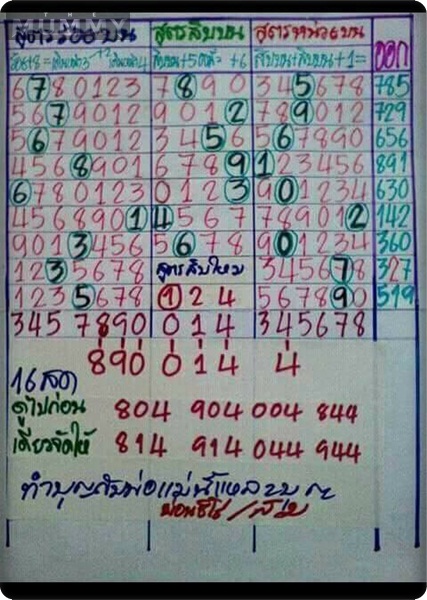 MUMMY
สูตรร้อยบน สูตรสิบบน สูตรหน่วยบน ออก
67801 23 7890 345678 785
5679012 9012 789012 729
5679012 3456 567890 656
4568901 6789 123456 891
6780123 0123 901234 630
4568901 4567 789012 142
9013456 5678 901234 360
1235678 สูตรสิบใหม่ 345678 327
1235678 124 567890 519
3457890 014 345678
890 014 4
16 ชุด
ดูไปก่อน 804 904 004 844
เดี๋ยวจัดให้ 814 914 044 944
ทำบุญกับพ่อแม่